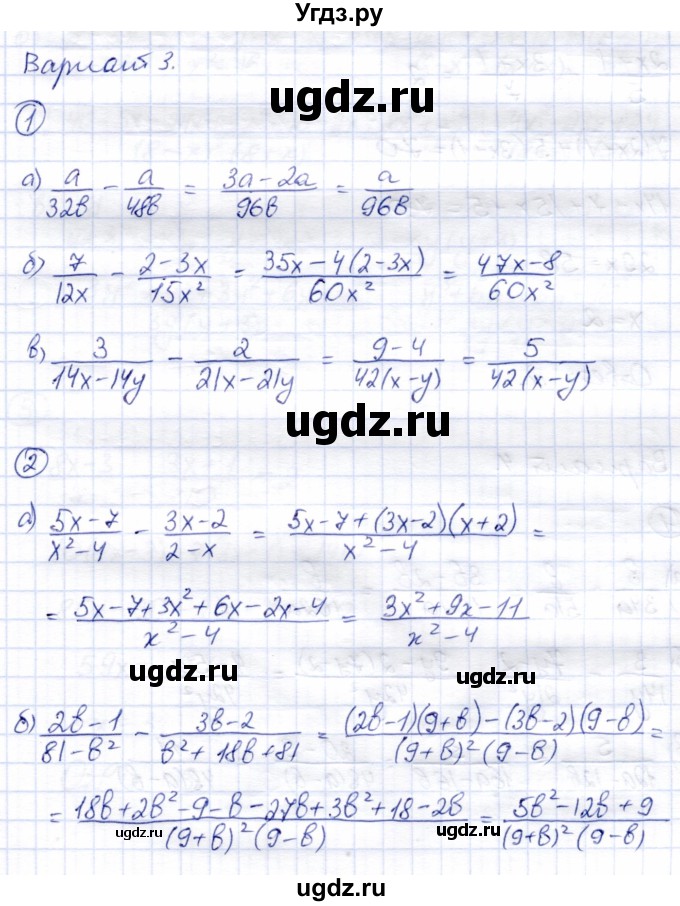 Угдз.ру
Вариант 3.
ugdz.ru
1
а) a/32b - a/48b = (3a-2a)/96b = a/96b
б) 7/12x - (2-3x)/15x² = (35x-4(2-3x))/60x² = (47x-8)/60x²
в) 3/(14x-14y) - 2/(21x-21y) = (9-4)/(42(x-y)) = 5/(42(x-y))
ugdz.ru
2
а) (5x-7)/(x²-4) - (3x-2)/(2-x) = (5x-7+(3x-2)(x+2))/(x²-4) =
= (5x-7+3x²+6x-2x-4)/(x²-4) = (3x²+9x-11)/(x²-4)
ugdz.ru ugdz.ru
б) (2b-1)/(81-b²) - (3b-2)/(b²+18b+81) = ((2b-1)(9+b)-(3b-2)(9-b))/((9+b)²(9-b)) =
= (18b+2b²-9-b-27b+3b²+18-2b)/((9+b)²(9-b)) = (5b²-12b+9)/((9+b)²(9-b))
ugdz.ru ugdz.ru
ugdz.ru